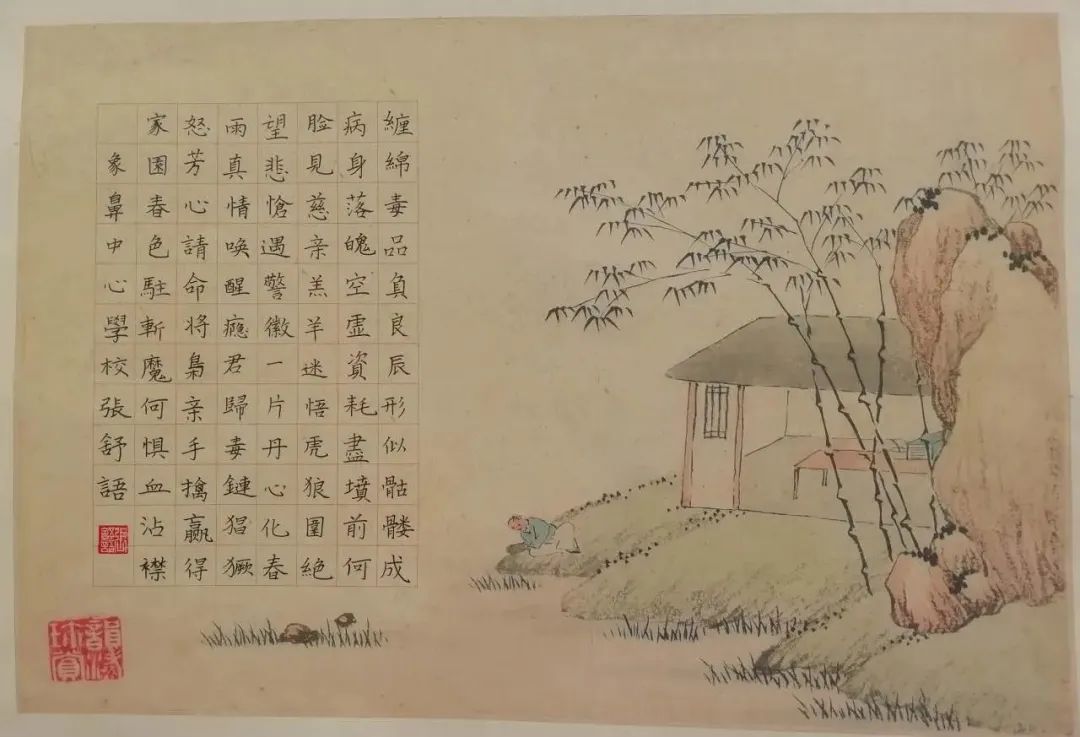 纏綿毒品負良辰形似骷髏成
病身落魄空虛資耗盡墳前何
脸見慈亲羔羊迷悟虎狼圍絕
望悲愴遇警徽一片丹心化春
雨真情唤醒瘾君歸毒鏈猖獗
怒芳心請命将梟亲手擒赢得
家園春色駐斬魔何惧血沾襟
象鼻中心學校張舒語